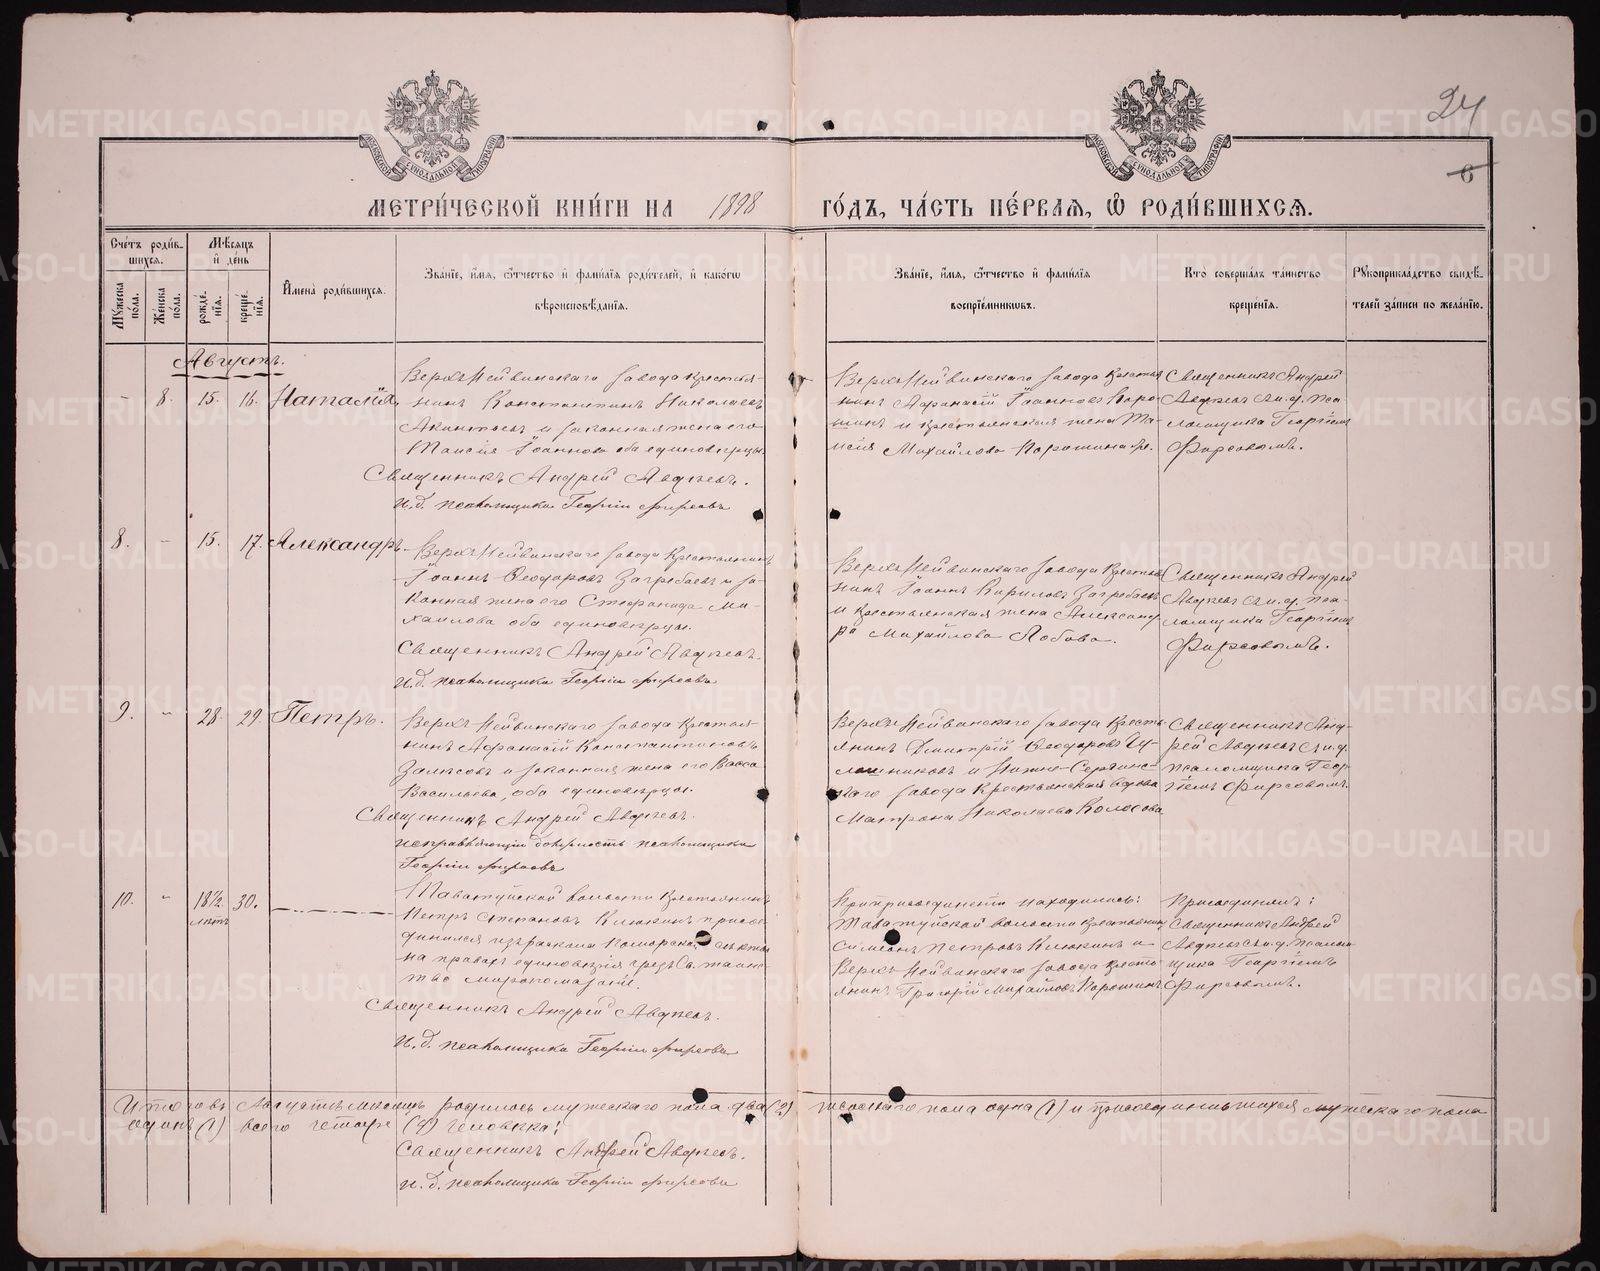 24
6
МОСКОВСКОЙ СѴНОДАЛЬНОЙ ТИПОГРАФІИ
МОСКОВСКОЙ СѴНОДАЛЬНОЙ ТИПОГРАФІИ
МЕТРИ́ЧЕСКОЙ КНИ́ГИ НА 1898 ГО́ДЪ, ЧА́СТЬ ПЕ́РВАЯ, Ѡ РОДИ́ВШИХСЯ.
Сче́тъ роди́в-
шихся.
Мꙋ́жеска по́ла.
Же́нска по́ла.
Мѣ́сяцъ
и҆ де́нь
рожде́-
нїя.
креще́-
нїя.
И҆мена̀ роди́вшихся.
Зва́нїе, и҆́мя, ѻ҆́тчество и҆ фами́лїя роди́телей, и҆ како́гѡ
вѣроисповѣ́данїя.
Зва́нїе, и҆́мя, ѻ҆́тчество и҆ фами́лїя
воспрїе́мникѡвъ.
Кто̀ соверша́лъ та́инство
креще́нїя.
Рꙋкоприкла́дство свидѣ́-
телей за́писи по жела́нїю.
Августъ.
- 8. 15. 16. Наталія,
Верхъ Нейвинскаго завода крестья-
нинъ Константинъ Николаевъ
Акинтьевъ и законная жена его
Таисія Іоаннова оба единоверцы.
Священникъ Андрей Авдѣевъ.
И. д. псаломщика Георгій Фирсовъ
Верхъ Нейвинскаго завода кресть
нинъ Афанасій Іоанновъ Поро-
шинъ и крестьянская жена Та-
исія Михайлова Порошина
Священникъ Андрей
Авдѣевъ съ и. д. пса-
ломщика Георгіем
Фирсовомъ.
8. - 15. 17. Александръ
Верхъ Нейвинскаго завода Крестьянинъ
Іоаннъ Ѳеодоровъ Загребаевъ и за-
конная жена его Стефанида Ми-
хаилова оба единоверцы.
Священникъ Андрей Авдѣевъ.
И. д. псаломщика Георгій Фирсовъ
Верхъ Нейвинскаго завода Крестья
нинъ Іоаннъ Кириловъ Загребаевъ
и крестьянская жена Александ-
ра Михайлова Лобова.
Священникъ Андрей
Авдѣевъ съ и. д. пса-
ломщика Георгіем
Фирсовомъ.
9. - 28. 29. Петръ.
Верхъ Нейвинскаго завода крестья-
нинъ Афанасій Константиновъ
и законная жена его Васса
Васильева, оба единоверцы.
Священникъ Андрей Авдѣевъ.
исправляющій должность псаломщика
Георгій Фирсовъ
Верхъ Нейвинскаго завода Кресть-
янинъ Дмитрій Ѳеодоровъ
и Нижне-Сергинс-
каго завода Крестьянская вдова
Матрона Николаева Колосова
Священникъ Анд-
рей Авдѣевъ съ и. д.
псаломщика Геор-
гіемъ Фирсовомъ.
10. - 18½ лѣтъ 30.
Таватуйской волости Крестьянинъ
Петръ Степановъ Клюкинъ присое-
динился изъ раскола Поморской секты
на правахъ единоверія чрезъ Св. таинс-
тво миропомазанія.
Священникъ Андрей Авдѣевъ.
И. д. псаломщика Георгій Фирсовъ
При присоединеніи находились:
Таватуйской волости крестьянинъ
Симеонъ Петровъ Клюкинъ и
Верхъ Нейвинскаго завода кресть
янинъ Григорій Михайловъ Порошинъ
Присоединялъ:
Священникъ Андрей
Авдѣевъ съ и. д. псалом
щика Георгіемъ
Фирсовомъ.
Итого въ Августѣ мѣсяцѣ родилось мужескаго пола два (2) женскаго пола одна (1) и присоединившихся мужескаго пола
одинъ (1) всего четыре (4) человѣка:
Священникъ Андрей Авдѣевъ.
И. д. псаломщика Георгій Фирсовъ